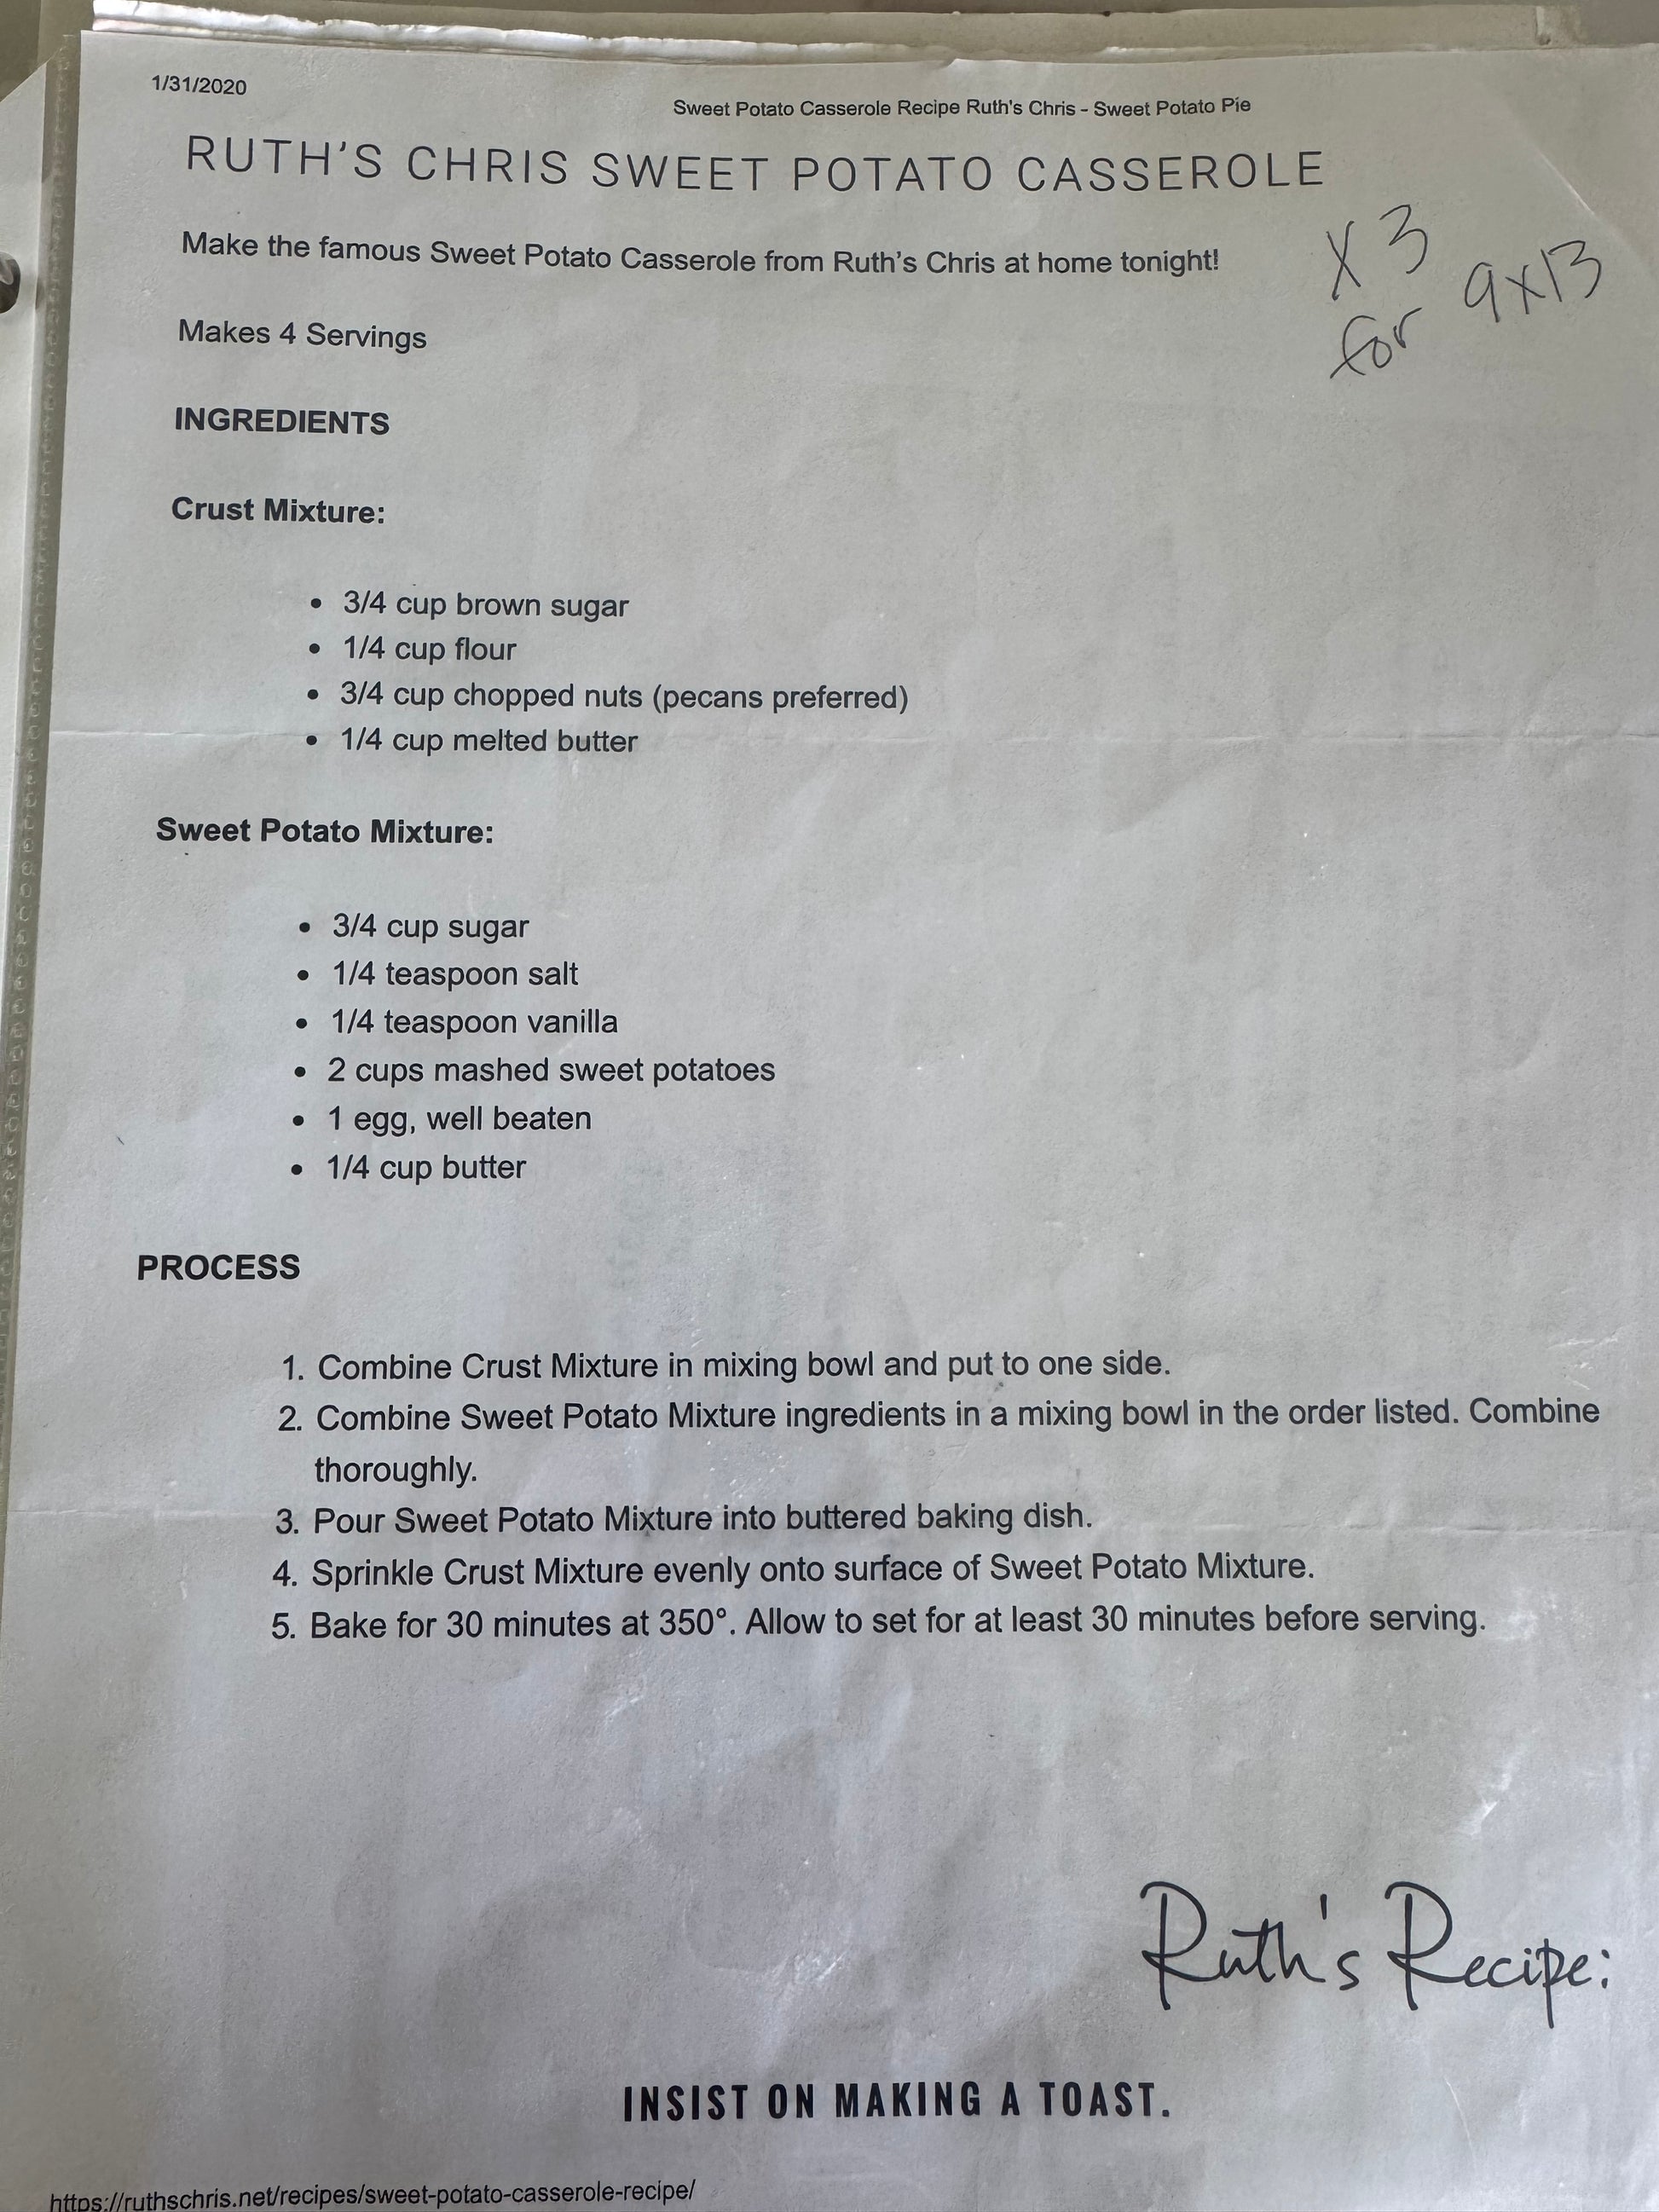 1/31/2020
Sweet Potato Casserole Recipe Ruth's Chris - Sweet Potato Pie
RUTH'S CHRIS SWEET POTATO CASSEROLE
Make the famous Sweet Potato Casserole from Ruth's Chris at home tonight!
X 3
for 9x13
Makes 4 Servings
INGREDIENTS
Crust Mixture:
• 3/4 cup brown sugar
• 1/4 cup flour
• 3/4 cup chopped nuts (pecans preferred)
• 1/4 cup melted butter
Sweet Potato Mixture:
• 3/4 cup sugar
• 1/4 teaspoon salt
• 1/4 teaspoon vanilla
• 2 cups mashed sweet potatoes
• 1 egg, well beaten
• 1/4 cup butter
PROCESS
1. Combine Crust Mixture in mixing bowl and put to one side.
2. Combine Sweet Potato Mixture ingredients in a mixing bowl in the order listed. Combine
thoroughly.
3. Pour Sweet Potato Mixture into buttered baking dish.
4. Sprinkle Crust Mixture evenly onto surface of Sweet Potato Mixture.
5. Bake for 30 minutes at 350°. Allow to set for at least 30 minutes before serving.
Ruth's Recipe:
INSIST ON MAKING A TOAST.
https://ruthschris.net/recipes/sweet-potato-casserole-recipe/